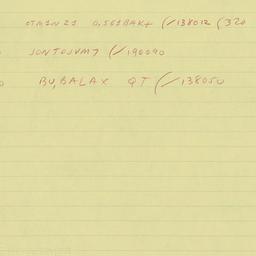 OTM1N21 0,561BAK+ (/138012 (320
JONTOJVM7 (/190090
BU,BALAX QT (/138050